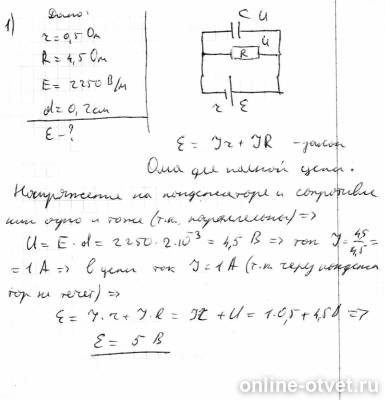 1) Дано:
r = 0,5 Ом
R = 4,5 Ом
E = 2250 В/м
d = 0,2 см
ℰ - ?
C U
U
R
r ℰ
ℰ = Ir + IR - закон
Ома для полной цепи.
Напряжение на конденсаторе и сопротивле
нии одно и тоже (т.к. параллельны) =>
U = E · d = 2250 · 2·10⁻³ = 4,5 В => ток I = 4,5/4,5 =
= 1 А => в цепи ток I = 1 А (т.к. через конденса
тор не течет) =>
ℰ = I·r + I·R = Ir + U = 1·0,5 + 4,5 =>
ℰ = 5 В
online-otvet.ru